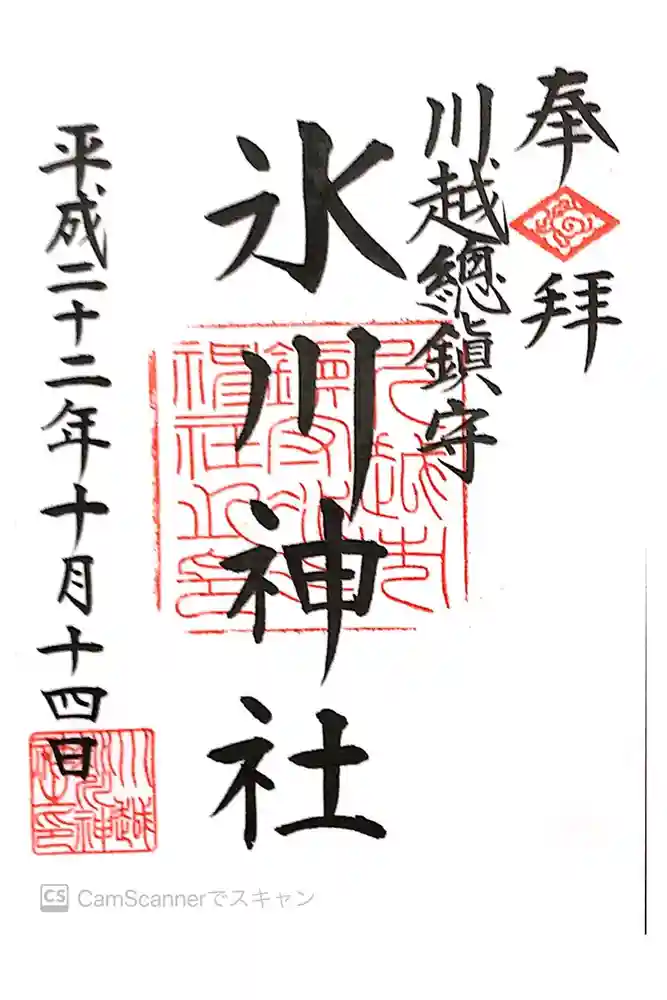 奉拝
川越總鎮守
氷川神社
平成二十二年十月十四日
川越氷川神社之印
CS CamScannerでスキャン